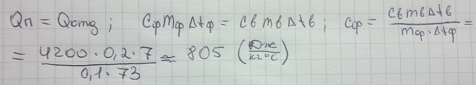 Qп = Qотд ; CфmфΔtф = CвmвΔtв ; Cф = CвmвΔtв / mф·Δtф =
= 4200·0,2·7 / 0,1·73 ≈ 805 (Дж / кг°C)